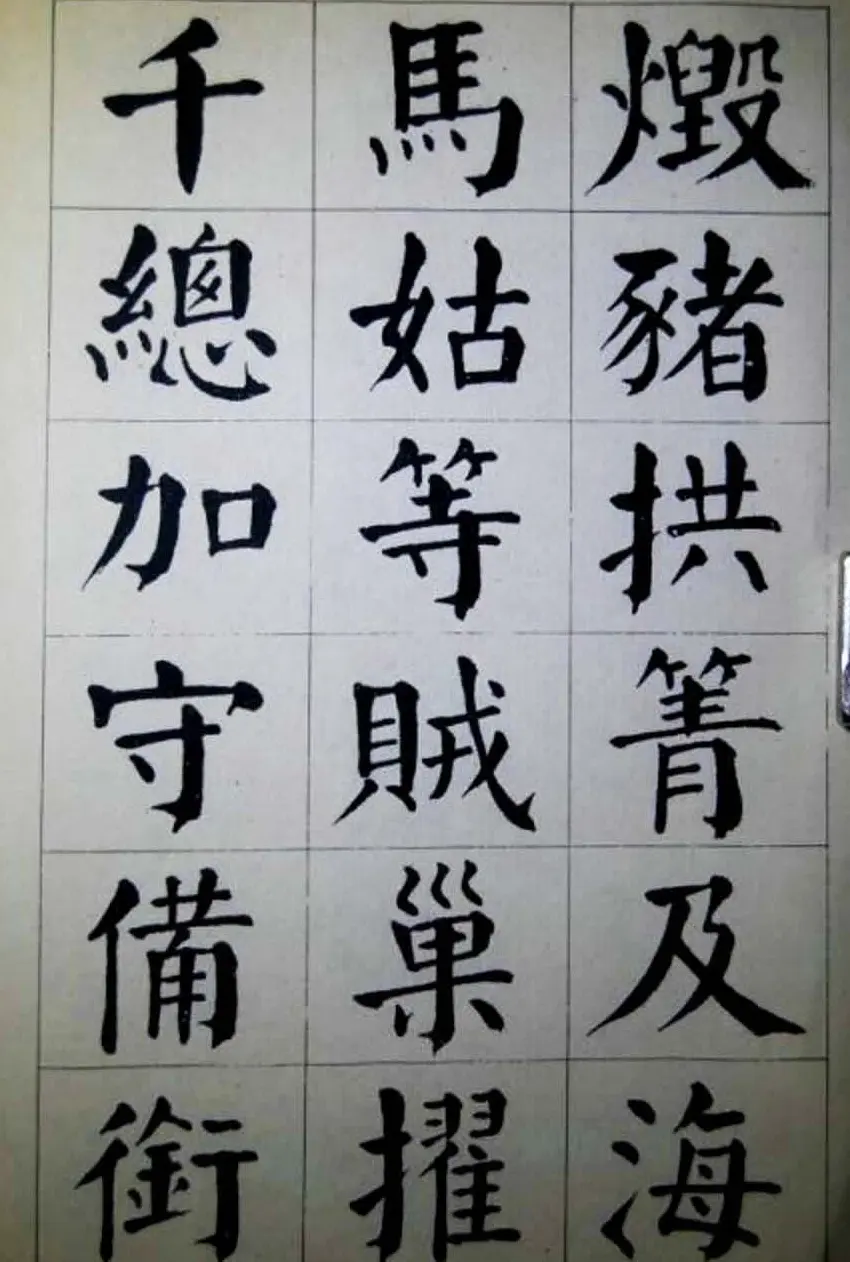 燬豬拱箐及海
馬姑等賊巢擢
千總加守備銜